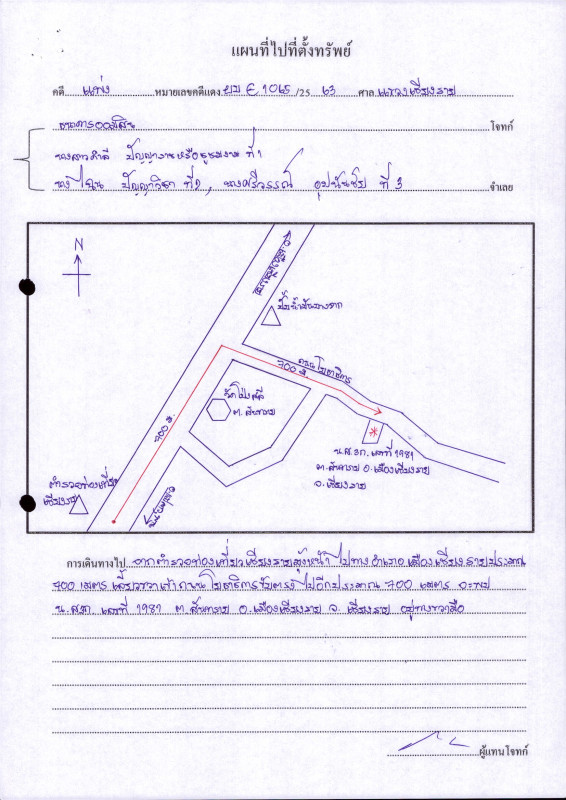 แผนที่ไปที่ตั้งทรัพย์
คดี แพ่ง หมายเลขคดีแดง ผบ E 1065 /25 63 ศาล แขวงเชียงราย
ธนาคารออมสิน โจทก์
ที่ 1
ที่ 2, ที่ 3 จำเลย
N
ปั๊มน้ำมันบางจาก
ถนนโยธาธิการ
700 ม.
วัดโป่งสลี
ต. สันทราย
700 ม.
น.ส.3ก. เลขที่ 1981
ต.สันทราย อ.เมืองเชียงราย
จ.เชียงราย
ตำรวจท่องเที่ยว
เชียงราย
การเดินทางไป จากตำรวจท่องเที่ยวเชียงรายมุ่งหน้า ไปทางอำเภอเมืองเชียงรายประมาณ
700 เมตร เลี้ยวขวาเข้าถนนโยธาธิการขับตรงไปอีกประมาณ 700 เมตร จะพบ
น.ส.3ก. เลขที่ 1981 ต.สันทราย อ.เมืองเชียงราย จ.เชียงราย อยู่ทางขวามือ
ผู้แทนโจทก์